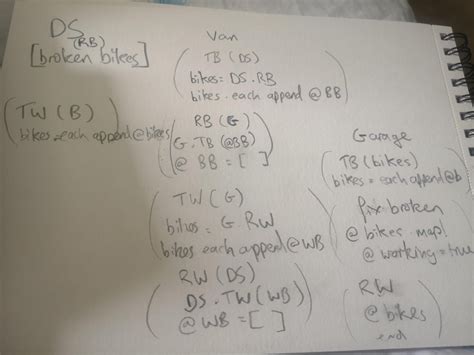 DS
(RB)
[broken bikes]
TW (B)
bikes = each append @bikes
Van
TB (DS)
bikes = DS.RB
bikes.each append @BB
RB (G)
G.TB (@BB)
@BB = [ ]
TW (G)
bikes = G.RW
bikes each append @WB
RW (DS)
DS.TW (WB)
@WB = [ ]
Garage
TB (bikes)
bikes = each append @b
fix broken
@bikes.map!
@working = true
RW
@bikes
end